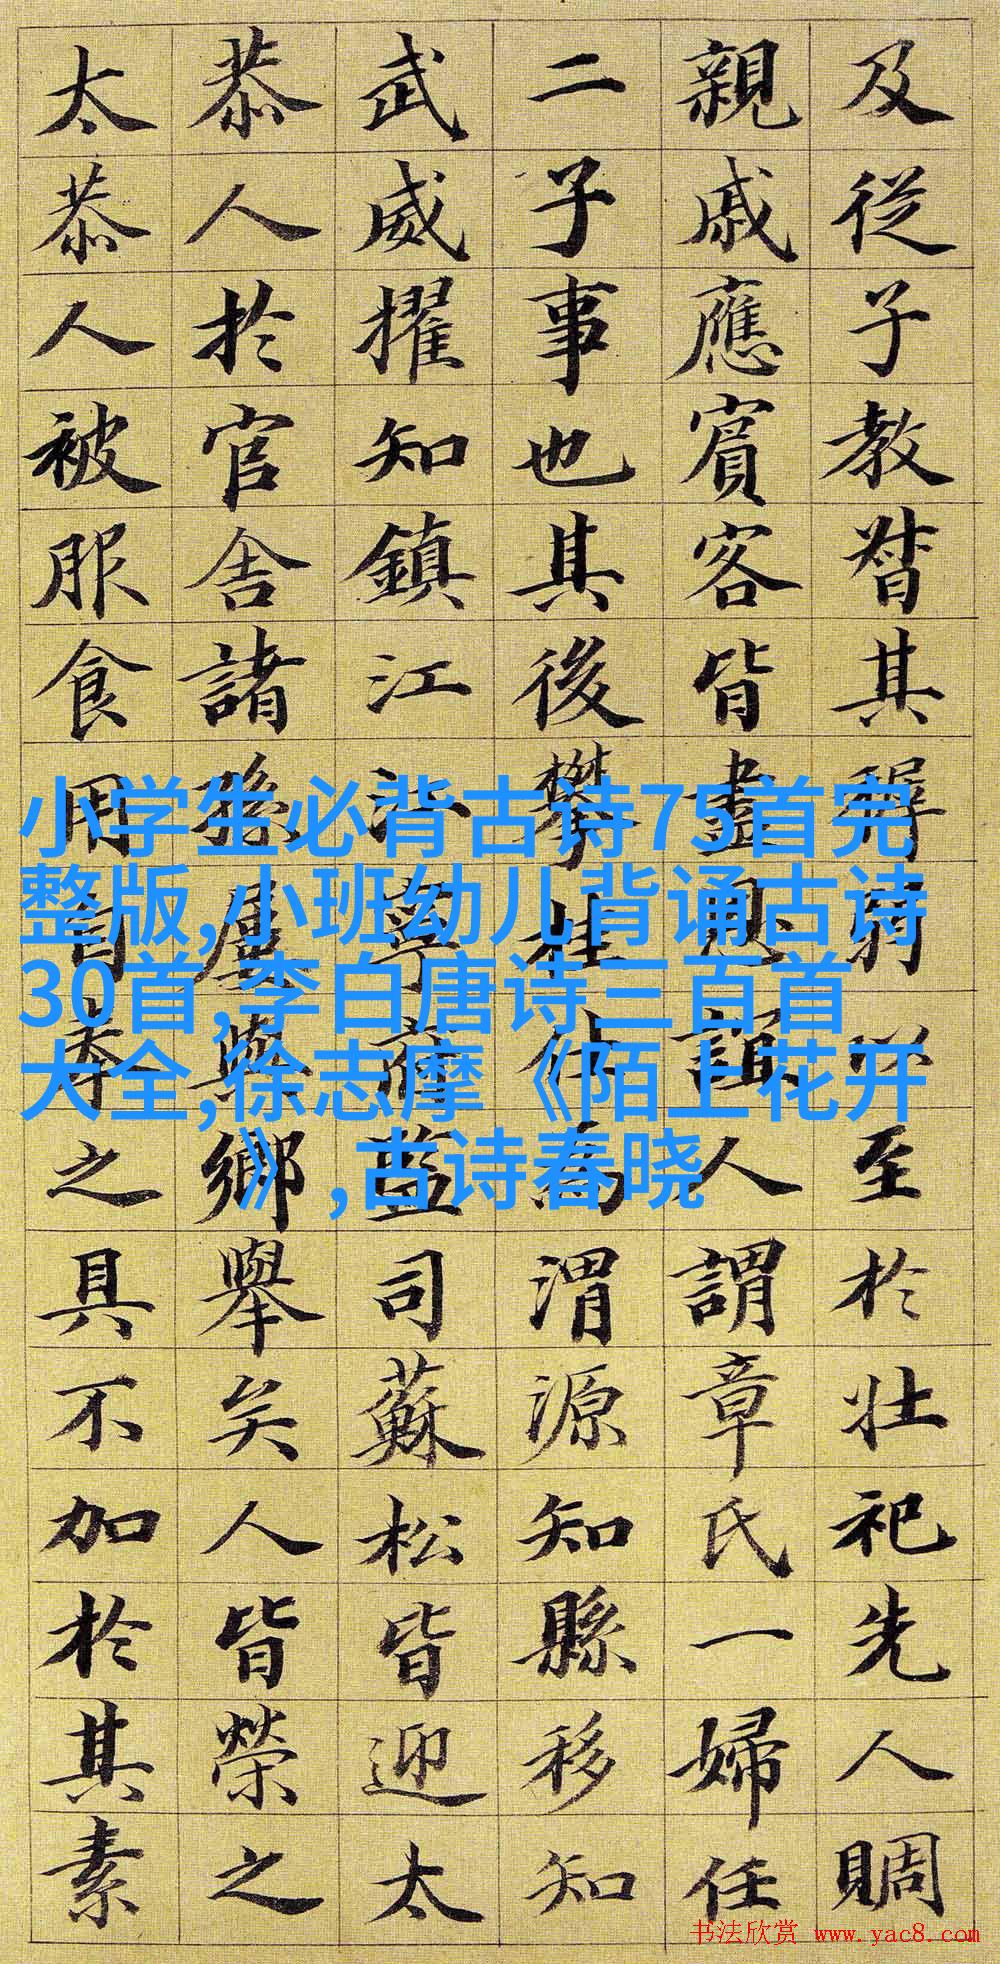 及從子教督其稺弱以至於壯祀先人賙
親戚應賓客皆盡恩誼人謂章氏一婦任
二子事也其後攀桂仕為渭源知縣移知
武威擢知鎮江江寧監司蘇松皆迎太
恭人於官舍諸孫屢與鄉舉矣人皆榮之
太恭人被服食用自奉之具不加於其素
小学生必背古诗75首完
整版,小班幼儿背诵古诗
30首,李白唐诗三百首
大全,徐志摩《陌上花开
》,古诗春晓
书法欣赏 www.yac8.com